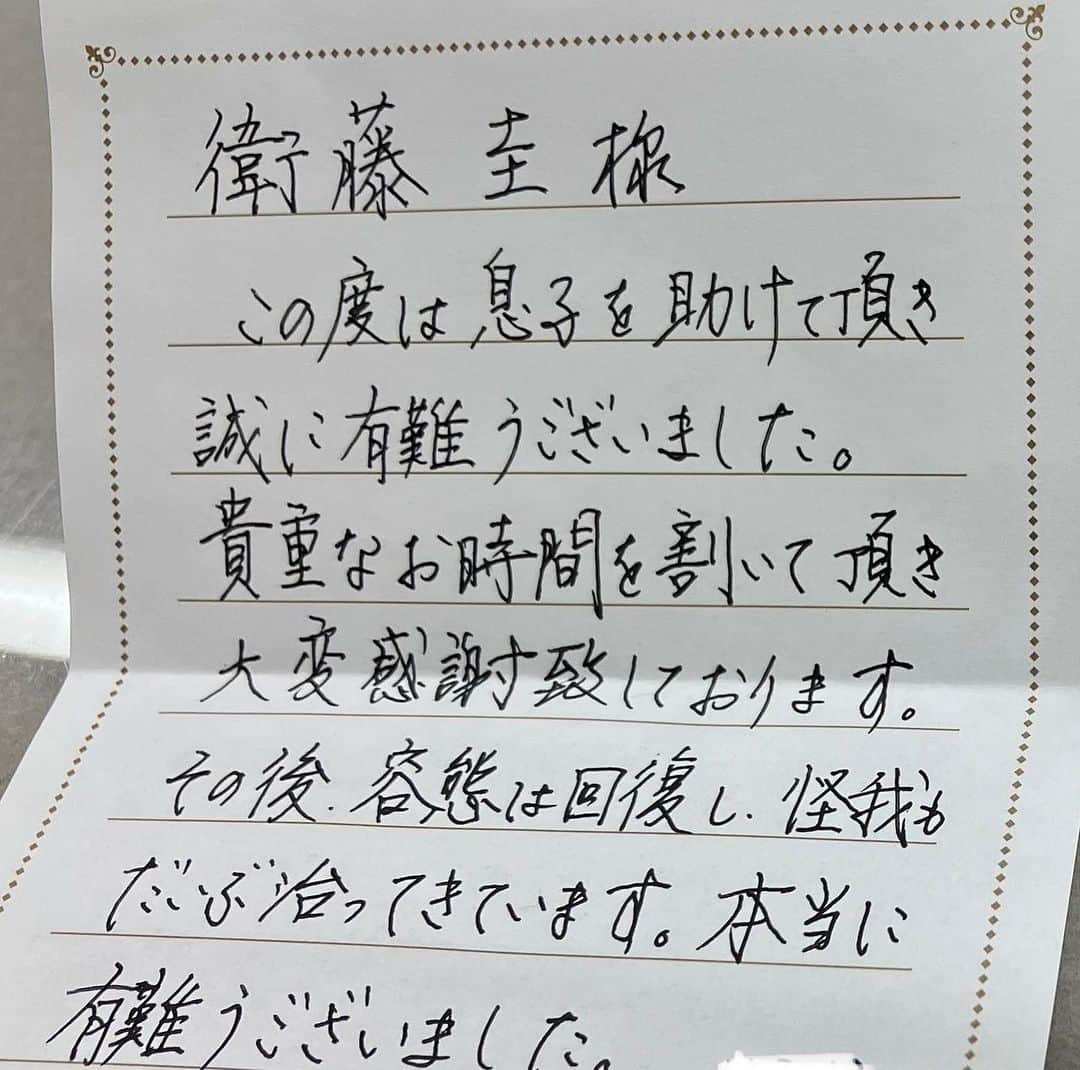 衛藤 圭様
この度は息子を助けて頂き
誠に有難うございました。
貴重なお時間を割いて頂き
大変感謝致しております。
その後、容態は回復し、怪我も
だいぶ治ってきています。本当に
有難うございました。